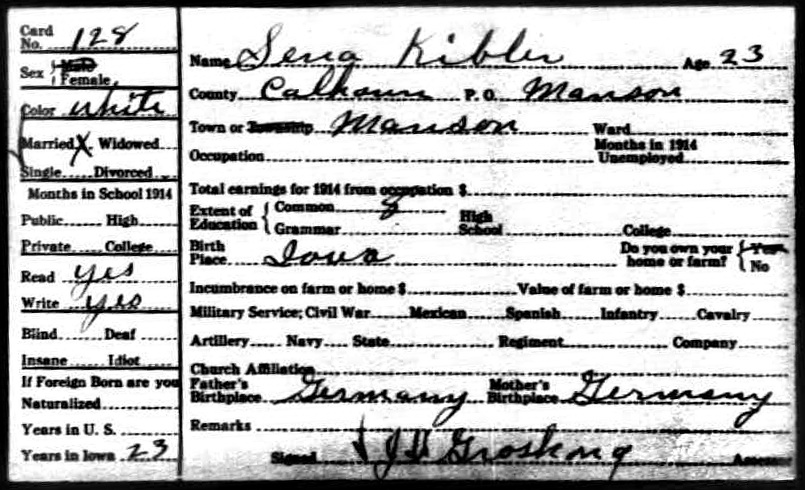 Card No. 128
Sex Male Female
Color White
Married X Widowed
Single Divorced
Months in School 1914
Public High
Private College
Read yes
Write yes
Blind Deaf
Insane Idiot
If Foreign Born are you
Naturalized
Years in U. S.
Years in Iowa 23
Name Sena Kibler Age 23
County Calhoun P. O. Manson
Town or Township Manson Ward
Occupation Months in 1914 Unemployed
Total earnings for 1914 from occupation $
Extent of Education Common 8 Grammar High School College
Birth Place Iowa Do you own your home or farm? Yes No
Incumbrance on farm or home $ Value of farm or home $
Military Service; Civil War Mexican Spanish Infantry Cavalry
Artillery Navy State Regiment Company
Church Affiliation
Father's Birthplace Germany Mother's Birthplace Germany
Remarks
Signed Assessor